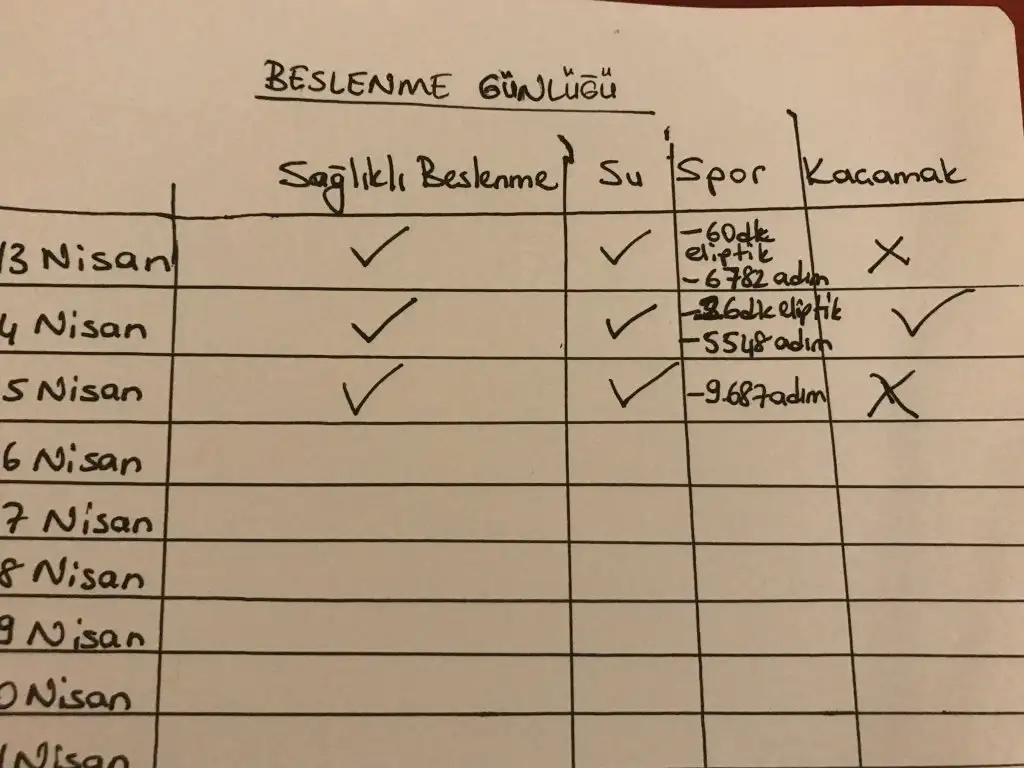 BESLENME GÜNLÜĞÜ
Sağlıklı Beslenme Su Spor Kacamak
13 Nisan ✓ ✓ -60dk eliptik -6782 adım ✗
4 Nisan ✓ ✓ eliptik -5548 adım ✓
5 Nisan ✓ ✓ -9.687 adım ✗
6 Nisan
7 Nisan
8 Nisan
9 Nisan
0 Nisan
1 Nisan